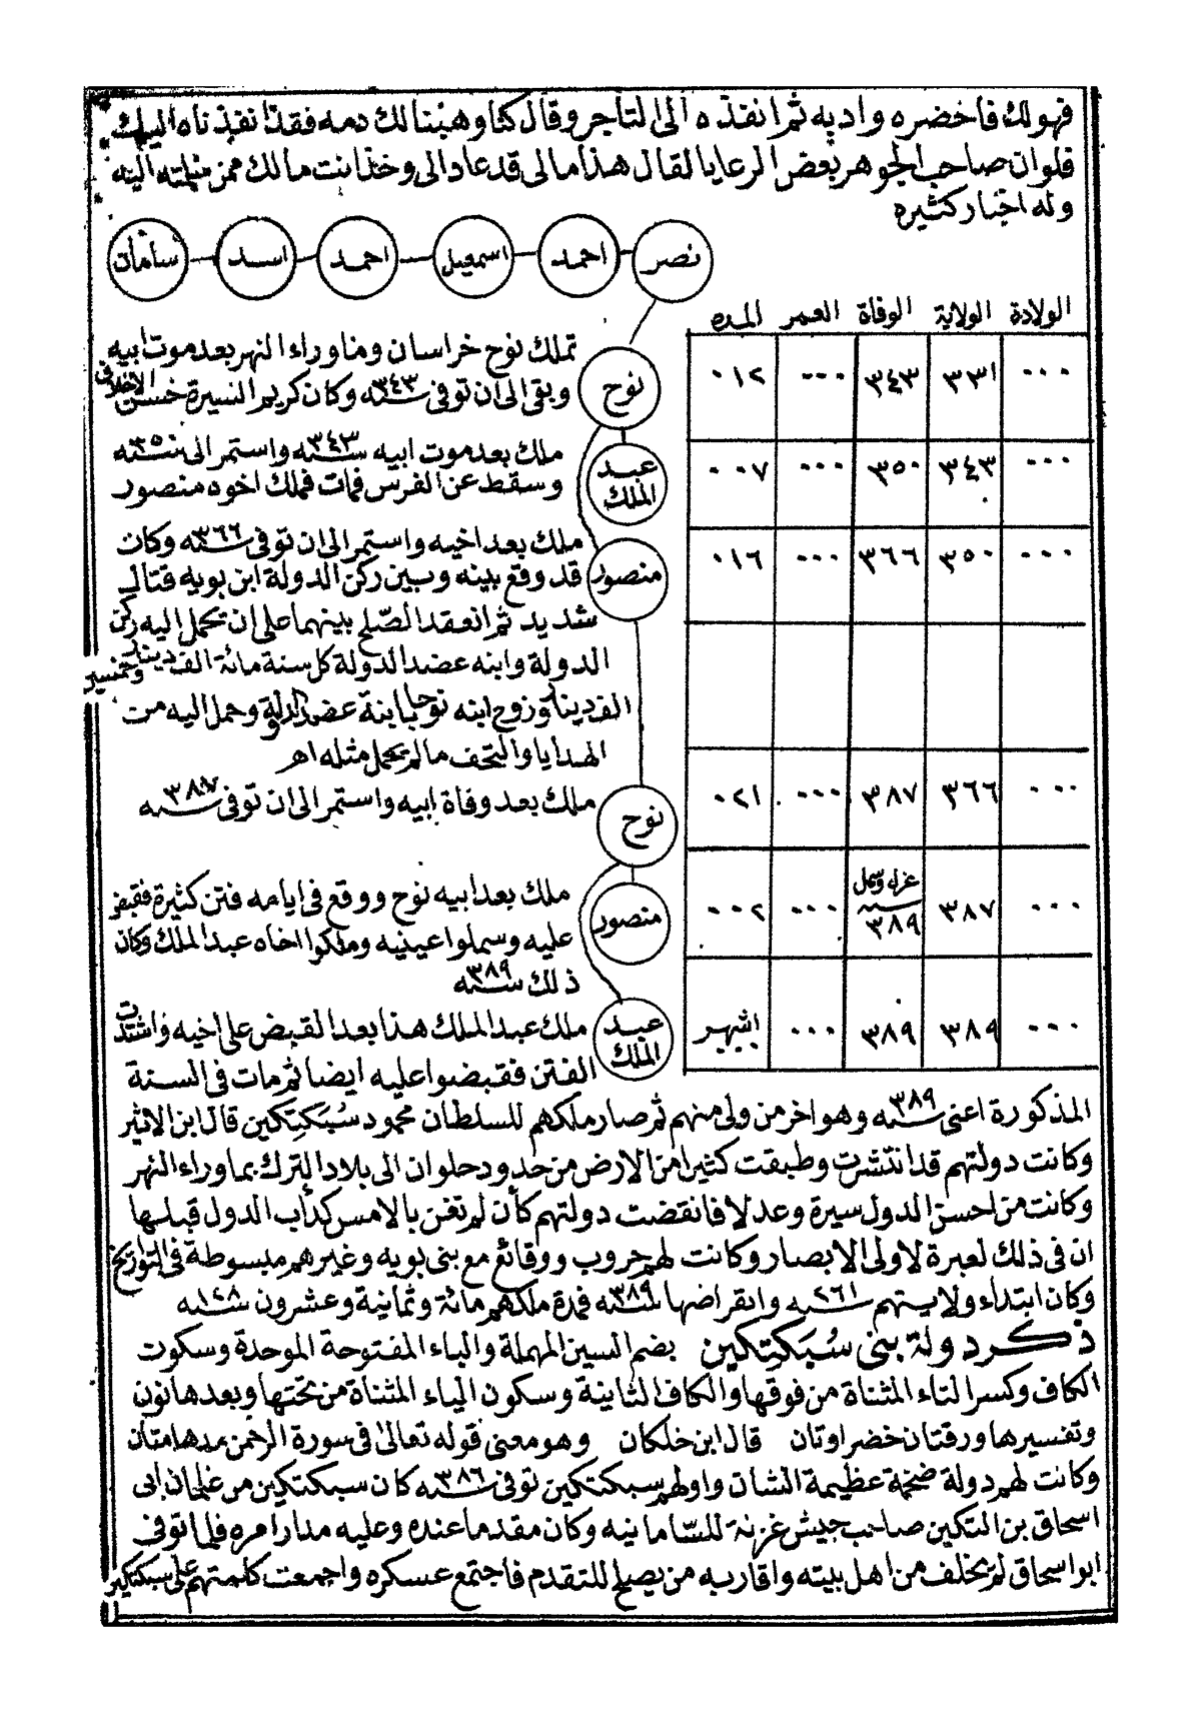 فهولك فاحضره وادبه ثم انفذه الى التاجر وقال كنا وهبنا لك دمه فقد انفذناه اليك
فلوان صاحب الجوهر بعض الرعايا لقال هذا مالى قد عاد الى وخذ انت مالك ممن سلمته اليه
وله اخبار كثيره
نصر احمد اسمعيل احمد اسد سامان
الولادة الولاية الوفاة العمر المده
٠٠٠ ٣٣١ ٣٤٣ ٠٠٠ ٠١٢
نوح
تملك نوح خراسان وماوراء النهر بعد موت ابيه
وبقى الى ان توفى سنه ٣٤٣ وكان كريم السيرة حسن الاخلاق
٠٠٠ ٣٤٣ ٣٥٠ ٠٠٠ ٠٠٧
عبد الملك
ملك بعد موت ابيه سنه ٣٤٣ واستمر الى سنه ٣٥٠
وسقط عن الفرس فمات فملك اخوه منصور
٠٠٠ ٣٥٠ ٣٦٦ ٠٠٠ ٠١٦
منصور
ملك بعد اخيه واستمر الى ان توفى سنه ٣٦٦ وكان
قد وقع بينه وبين ركن الدولة ابن بويه قتال
شديد ثم انعقد الصّلح بينهما على ان تحمل اليه ركن
الدولة وابنه عضد الدولة كل سنة مائة الف دينار وخمسين
الف دينار وزوج ابنه نوحا بابنة عضد الدولة وحمل اليه من
الهدايا والتحف مالم يحمل مثله اهر
٠٠٠ ٣٦٦ ٣٨٧ ٠٠٠ ٠٢١
نوح
ملك بعد وفاة ابيه واستمر الى ان توفى سنه ٣٨٧
٠٠٠ ٣٨٧ عزل وسمل سنه ٣٨٩ ٠٠٠ ٠٠٢
منصور
ملك بعد ابيه نوح ووقع فى ايامه فتن كثيرة فقبض
عليه وسملوا عينيه وملكوا اخاه عبد الملك وكان
ذلك سنه ٣٨٩
٠٠٠ ٣٨٩ ٣٨٩ ٠٠٠ اشهر
عبد الملك
ملك عبد الملك هذا بعد القبض على اخيه واشتدت
الفتن فقبضوا عليه ايضا ثم مات فى السنة
المذكورة اعنى سنه ٣٨٩ وهو اخر من ولى منهم ثم صار ملكهم للسلطان محمود سُبَكتِكين قال ابن الاثير
وكانت دولتهم قد انتشرت وطبقت كثيرا من الارض من حدود حلوان الى بلاد الترك بماوراء النهر
وكانت من احسن الدول سيرة وعدلا فانقضت دولتهم كأن لم تغن بالامس كدأب الدول قبلها
ان فى ذلك لعبرة لاولى الابصار وكانت لهم حروب ووقائع مع بنى بويه وغيرهم مبسوطة فى التواريخ
وكان ابتداء ولايتهم سنه ٢٦١ وانقراضها سنه ٣٨٩ فمدة ملكهم مائة وثمانية وعشرون سنه ١٢٨
ذكر دولة بنى سُبَكتِكين بضم السين المهملة والباء المفتوحة الموحدة وسكون
الكاف وكسر التاء المثناة من فوقها والكاف الثانية وسكون الياء المثناة من تحتها وبعدها نون
وتفسيرها ورقتان خضراوتان قال ابن خلكان وهو معنى قوله تعالى فى سورة الرحمن مدهامتان
وكانت لهم دولة ضخمة عظيمة الشان واولهم سبكتكين توفى سنه ٣٨٦ كان سبكتكين من غلمان ابى
اسحاق بن التكين صاحب جيش غزنة للسّامانيه وكان مقدما عنده وعليه مدار امره فلما توفى
ابو اسحاق لم يخلف من اهل بيته واقاربه من يصلح للتقدم فاجتمع عسكره واجمعت كلمتهم على سبكتكين